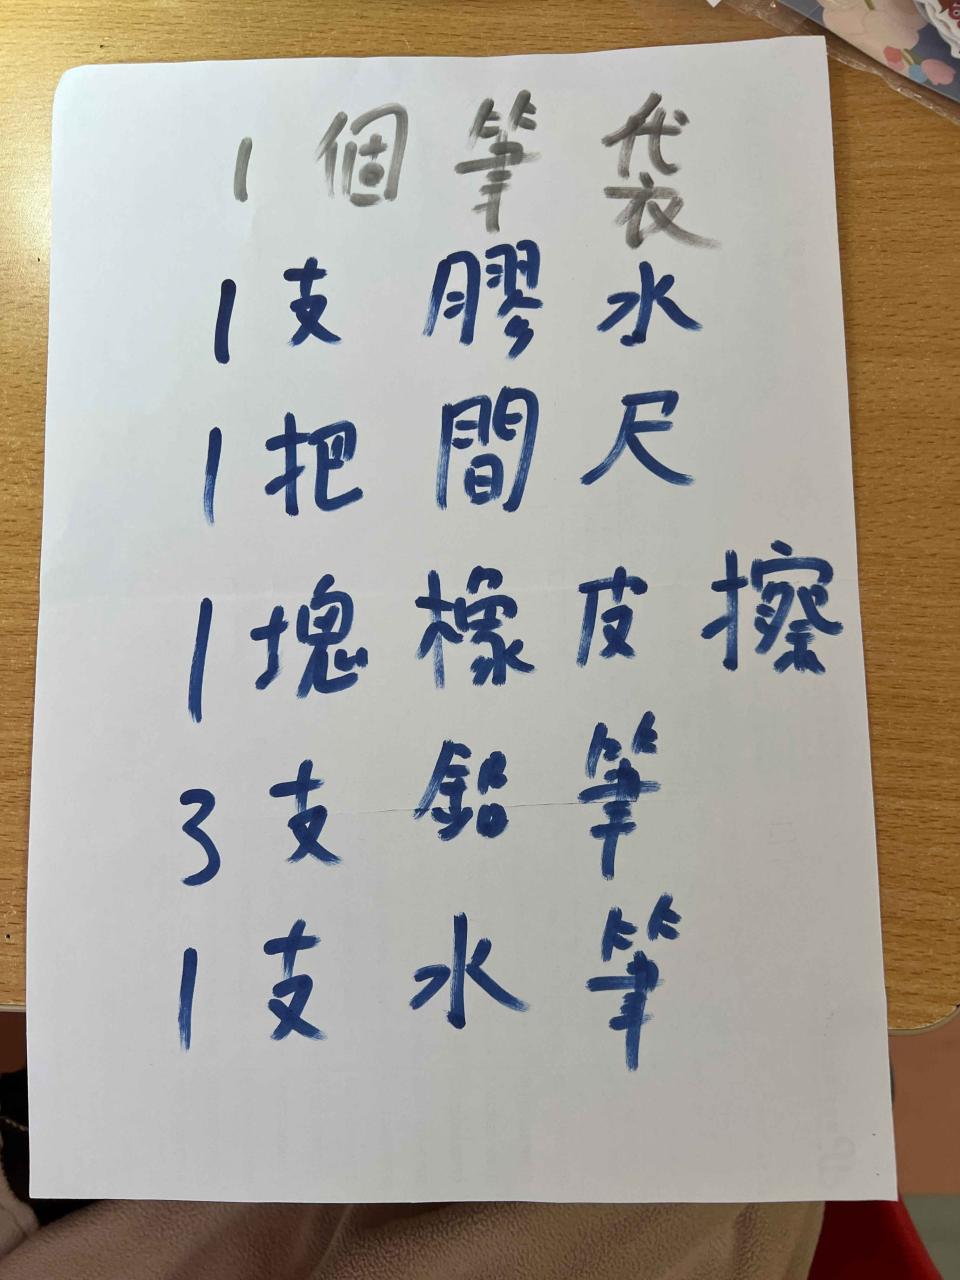 1個筆袋
1支膠水
1把間尺
1塊橡皮擦
3支鉛筆
1支水筆